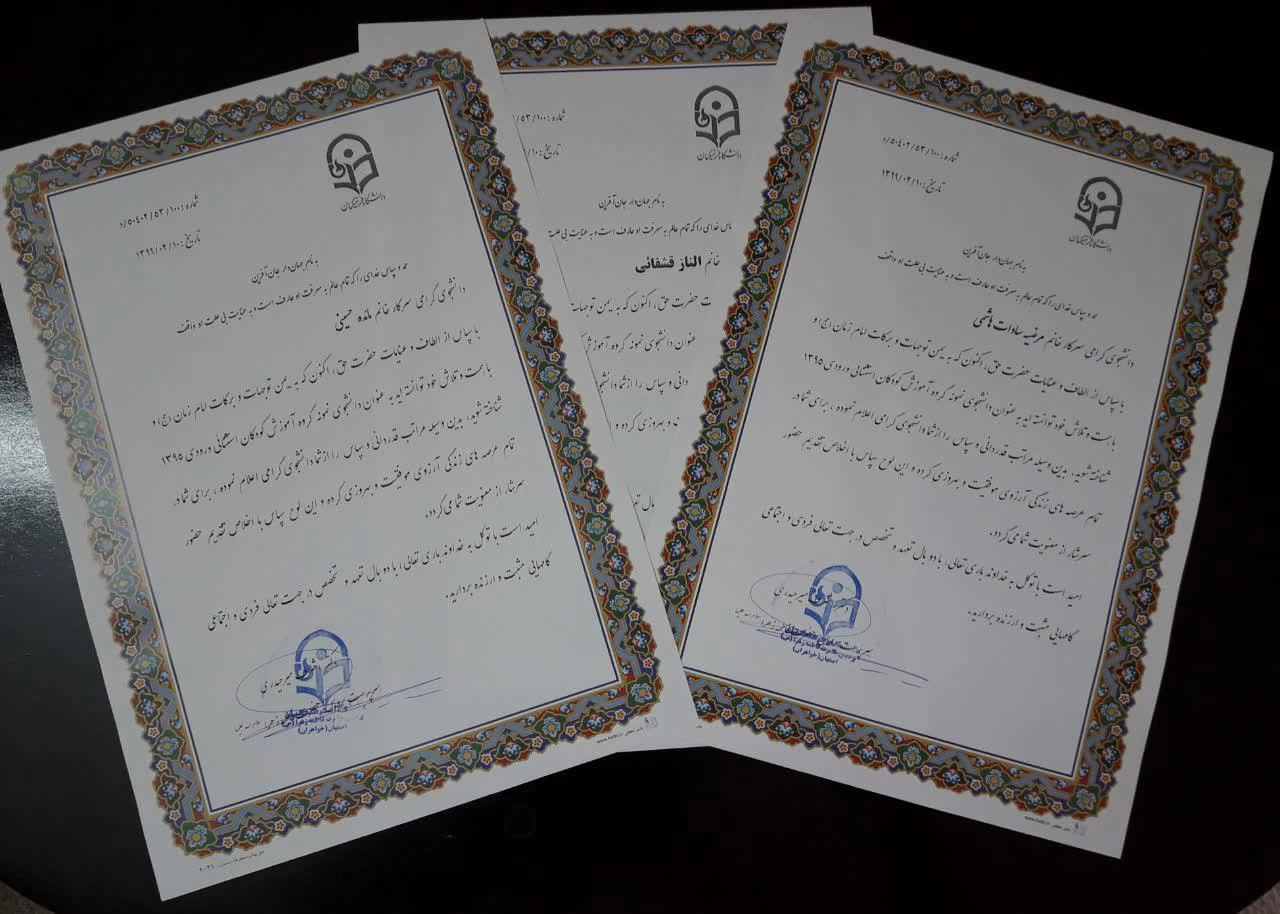 دانشگاه فرهنگیان
شماره: ۵۰۴۰۲/۵۳/۱۰۰/د
تاریخ: ۱۳۹۹/۰۲/۱۰
به نام جهان‌دار جان‌آفرین
حمد و سپاس خدای را که تمام عالم به معرفت او عارف است و به عنایت بی علت او واقف
دانشجوی گرامی سرکار خانم مائده حسینی
با سپاس از الطاف و عنایات حضرت حق، اکنون که به یمن توجهات و برکات امام زمان (عج) و
با همت و تلاش خود توانسته اید به عنوان دانشجوی نمونه گروه آموزش کودکان استثنایی ورودی ۱۳۹۵
شناخته شوید، بدین وسیله مراتب قدردانی و سپاس را از شما دانشجوی گرامی اعلام نموده، برای شما در
تمام عرصه های زندگی آرزوی موفقیت و بهروزی کرده و این لوح سپاس با اخلاص تقدیم حضور
سرشار از معنویت شما می گردد.
امید است با توکل به خداوند باری تعالی، با دو بال تعهد و تخصص در جهت تعالی فردی و اجتماعی
گامهایی مثبت و ارزنده بردارید.
میرحیدری
فاطمه زهرا (س)
اصفهان (خواهران)
دانشگاه فرهنگیان
شماره: ۱۰۰/۵۳/
تاریخ: ۱۰/
به نام جهان‌دار جان‌آفرین
پاس خدای را که تمام عالم به معرفت او عارف است و به عنایت بی علت
خانم الناز قشقائی
ت حضرت حق، اکنون که به یمن توجهات
عنوان دانشجوی نمونه گروه آموزش
دانی و سپاس را از شما دانشجو
و بهروزی کرده و
بال
دانشگاه فرهنگیان
شماره: ۵۰۴۰۲/۵۳/۱۰۰/د
تاریخ: ۱۳۹۹/۰۲/۱۰
به نام جهان‌دار جان‌آفرین
حمد و سپاس خدای را که تمام عالم به معرفت او عارف است و به عنایت بی علت او واقف
دانشجوی گرامی سرکار خانم مرضیه سادات هاشمی
با سپاس از الطاف و عنایات حضرت حق، اکنون که به یمن توجهات و برکات امام زمان (عج) و
با همت و تلاش خود توانسته اید به عنوان دانشجوی نمونه گروه آموزش کودکان استثنایی ورودی ۱۳۹۵
شناخته شوید. بدین وسیله مراتب قدردانی و سپاس را از شما دانشجوی گرامی اعلام نموده، برای شما در
تمام عرصه های زندگی آرزوی موفقیت و بهروزی کرده و این لوح سپاس با اخلاص تقدیم حضور
سرشار از معنویت شما می گردد.
امید است با توکل به خداوند باری تعالی، با دو بال تعهد و تخصص در جهت تعالی فردی و اجتماعی
گامهایی مثبت و ارزنده بردارید.
میرحیدری
فاطمه زهرا (س)
اصفهان (خواهران)